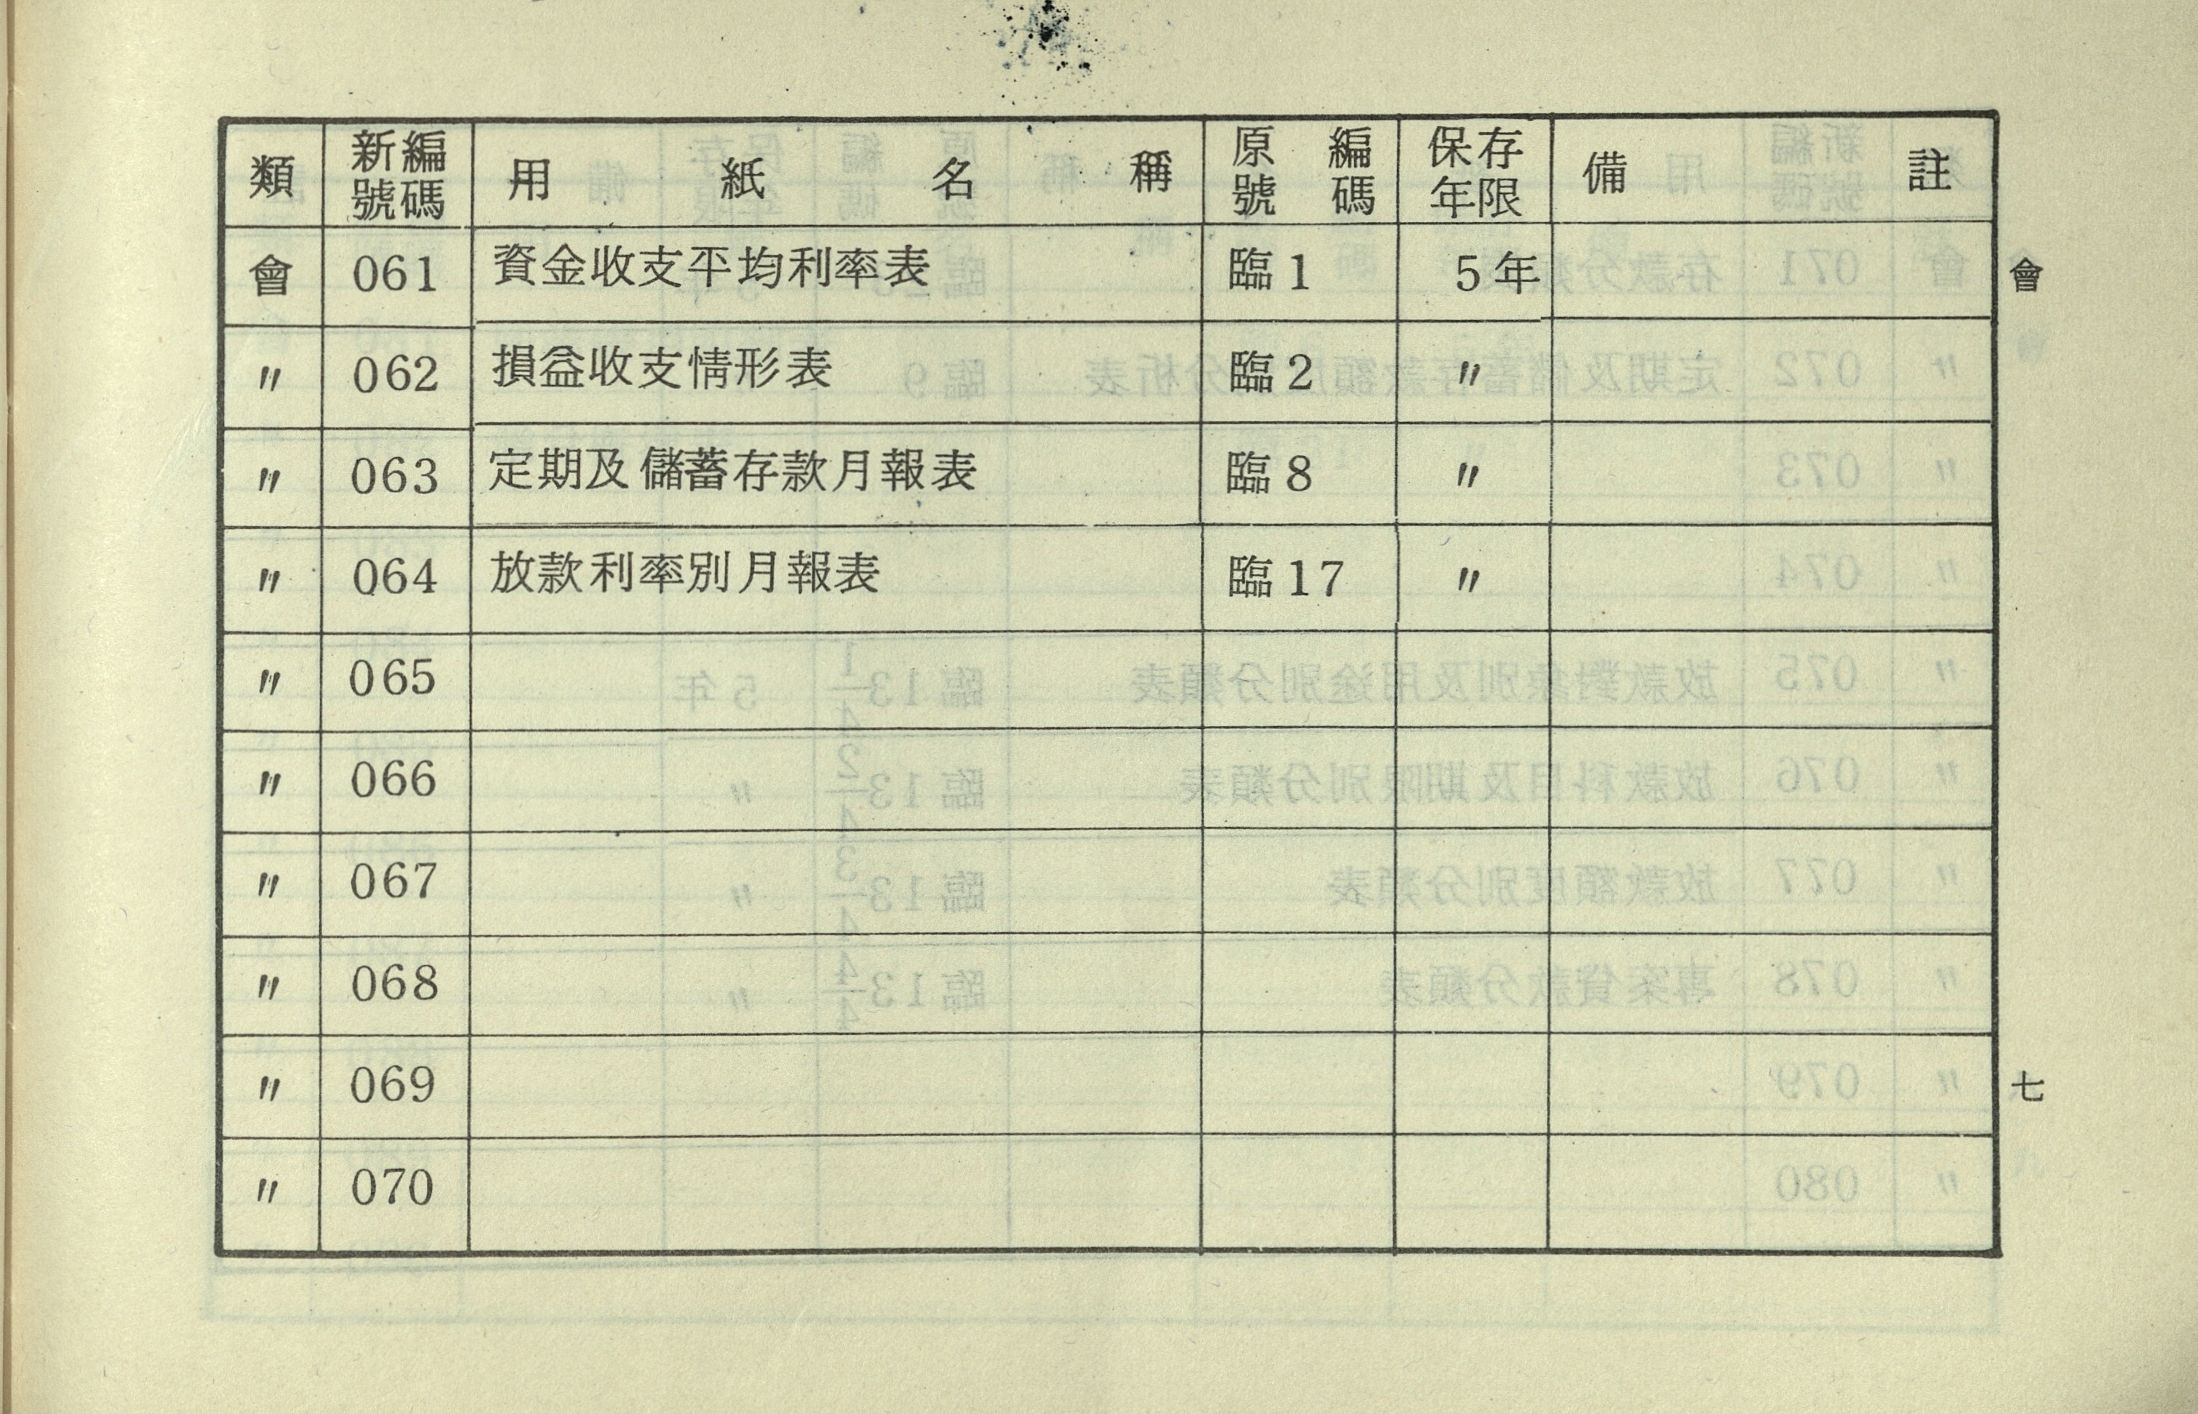 類 新編號碼 用紙名稱 原編號碼 保存年限 備註
會 061 資金收支平均利率表 臨1 5年
〃 062 損益收支情形表 臨2 〃
〃 063 定期及儲蓄存款月報表 臨8 〃
〃 064 放款利率別月報表 臨17 〃
〃 065
〃 066
〃 067
〃 068
〃 069
〃 070
會
七